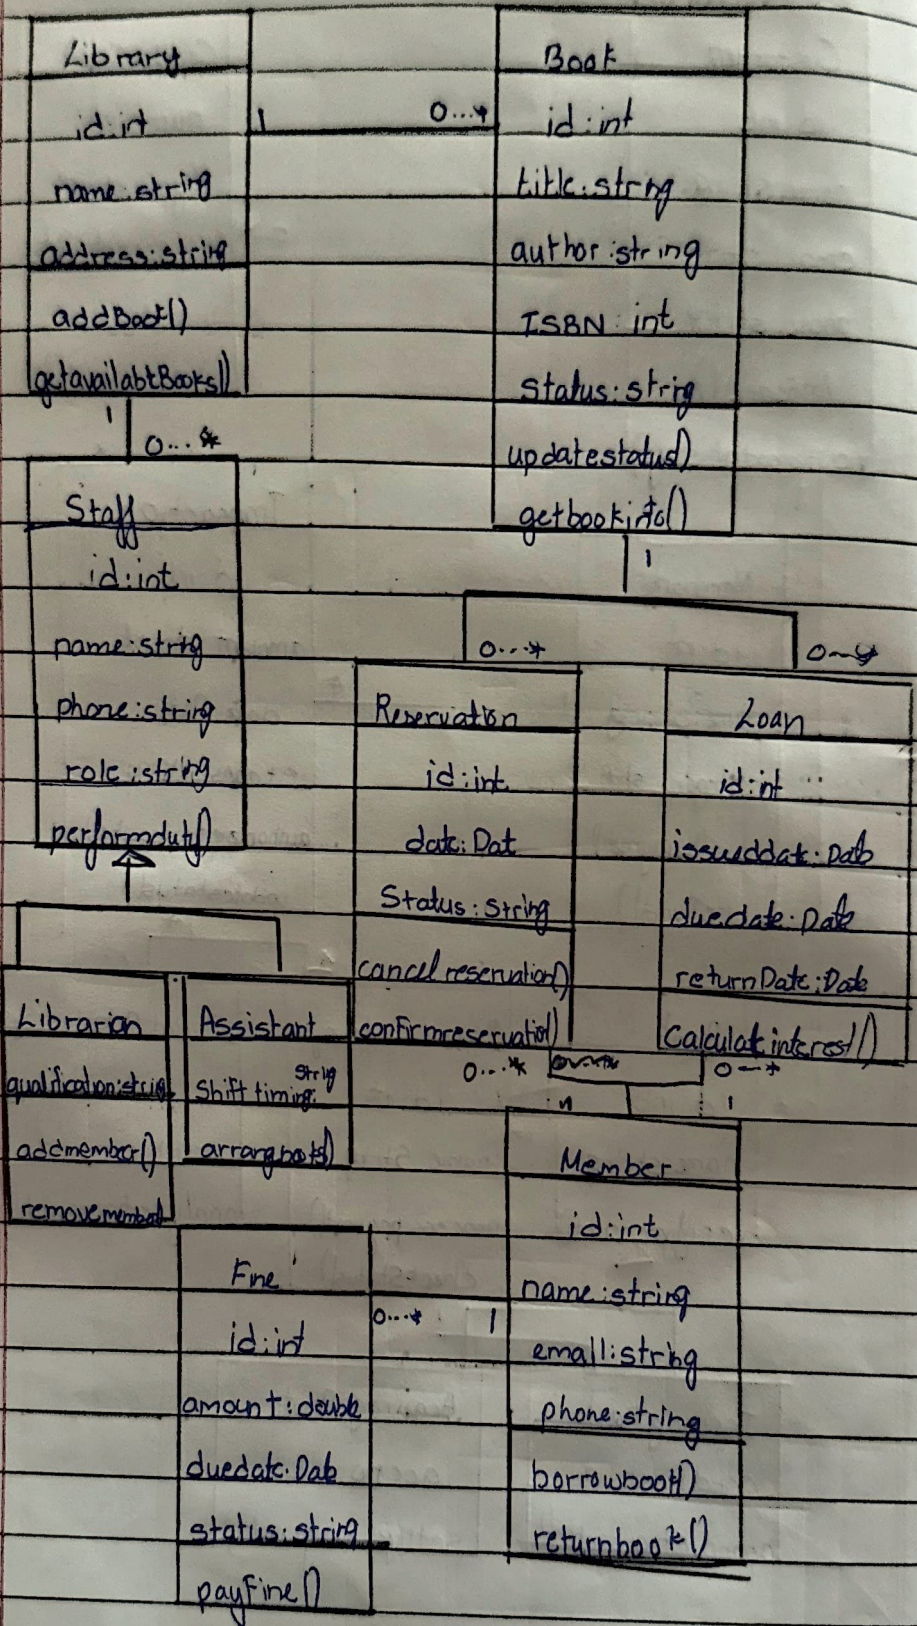 Library
id:int
name:string
address:string
addBook()
getavailabtBooks()
1
0...*
1
0...*
Book
id:int
title:string
author:string
ISBN:int
status:string
updatestatus()
getbookinfo()
1
0...*
0...*
Staff
id:int
name:string
phone:string
role:string
performduty()
Reservation
id:int
date:Dat
Status:String
cancelreservation()
confirmreservatio()
0...*
Loan
id:int
issueddate:Date
duedate:Date
returnDate:Date
Calculateinterest()
0...*
1
Librarian
qualification:string
addmember()
removemember()
Assistant
Shift timing:
String
arrangbooks()
Member
id:int
name:string
email:string
phone:string
borrowbook()
returnbook()
0...*
1
Fine
id:int
amount:double
duedate:Date
status:string
payFine()